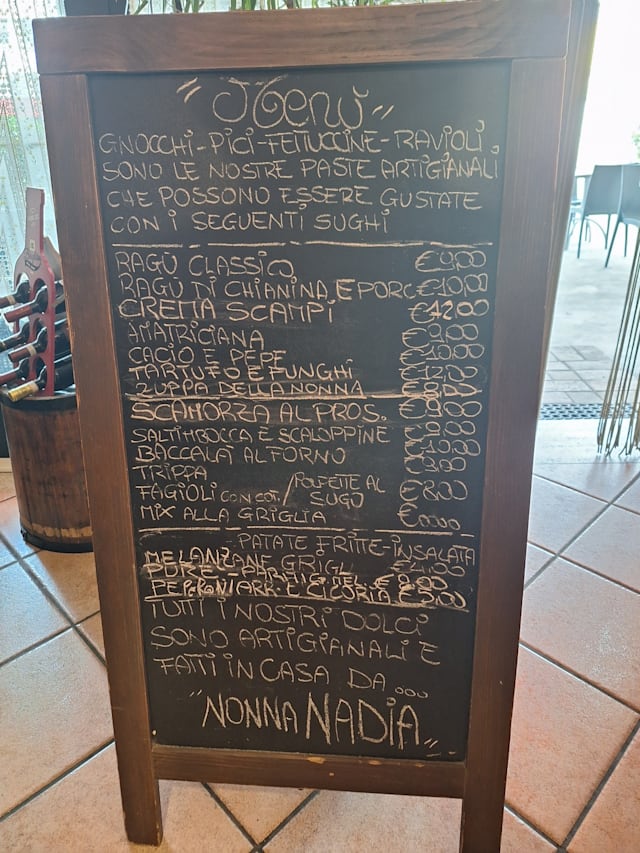 "Menù"
GNOCCHI-PICI-FETTUCCINE-RAVIOLI
SONO LE NOSTRE PASTE ARTIGIANALI
CHE POSSONO ESSERE GUSTATE
CON i SEGUENTi SUGHi
RAGÙ CLASSICO €9,00
RAGÙ DI CHIANINA E PORC €10,00
CREMA SCAMPi €12,00
AMATRICIANA €9,00
CACIO E PEPE €10,00
TARTUFO E FUNGHi €12,00
ZUPPA DELLA NONNA
SCAMORZA AL PROS. €8,00
SALTIMBOCCA E SCALOPPINE €9,00
BACCALÀ AL FORNO €10,00
TRIPPA €8,00
FAGIOLI CON COT. / POLPETTE AL SUGO €8,00
MIX ALLA GRIGLIA
-PATATE FRITTE-INSALATA
MELANZANE GRIGL €4,00
PEPERONI E CICORIA €5,00
TUTTI I NOSTRI DOLCi
SONO ARTIGIANALI E
FATTi iN CASA DA ...
"NONNA NADiA"